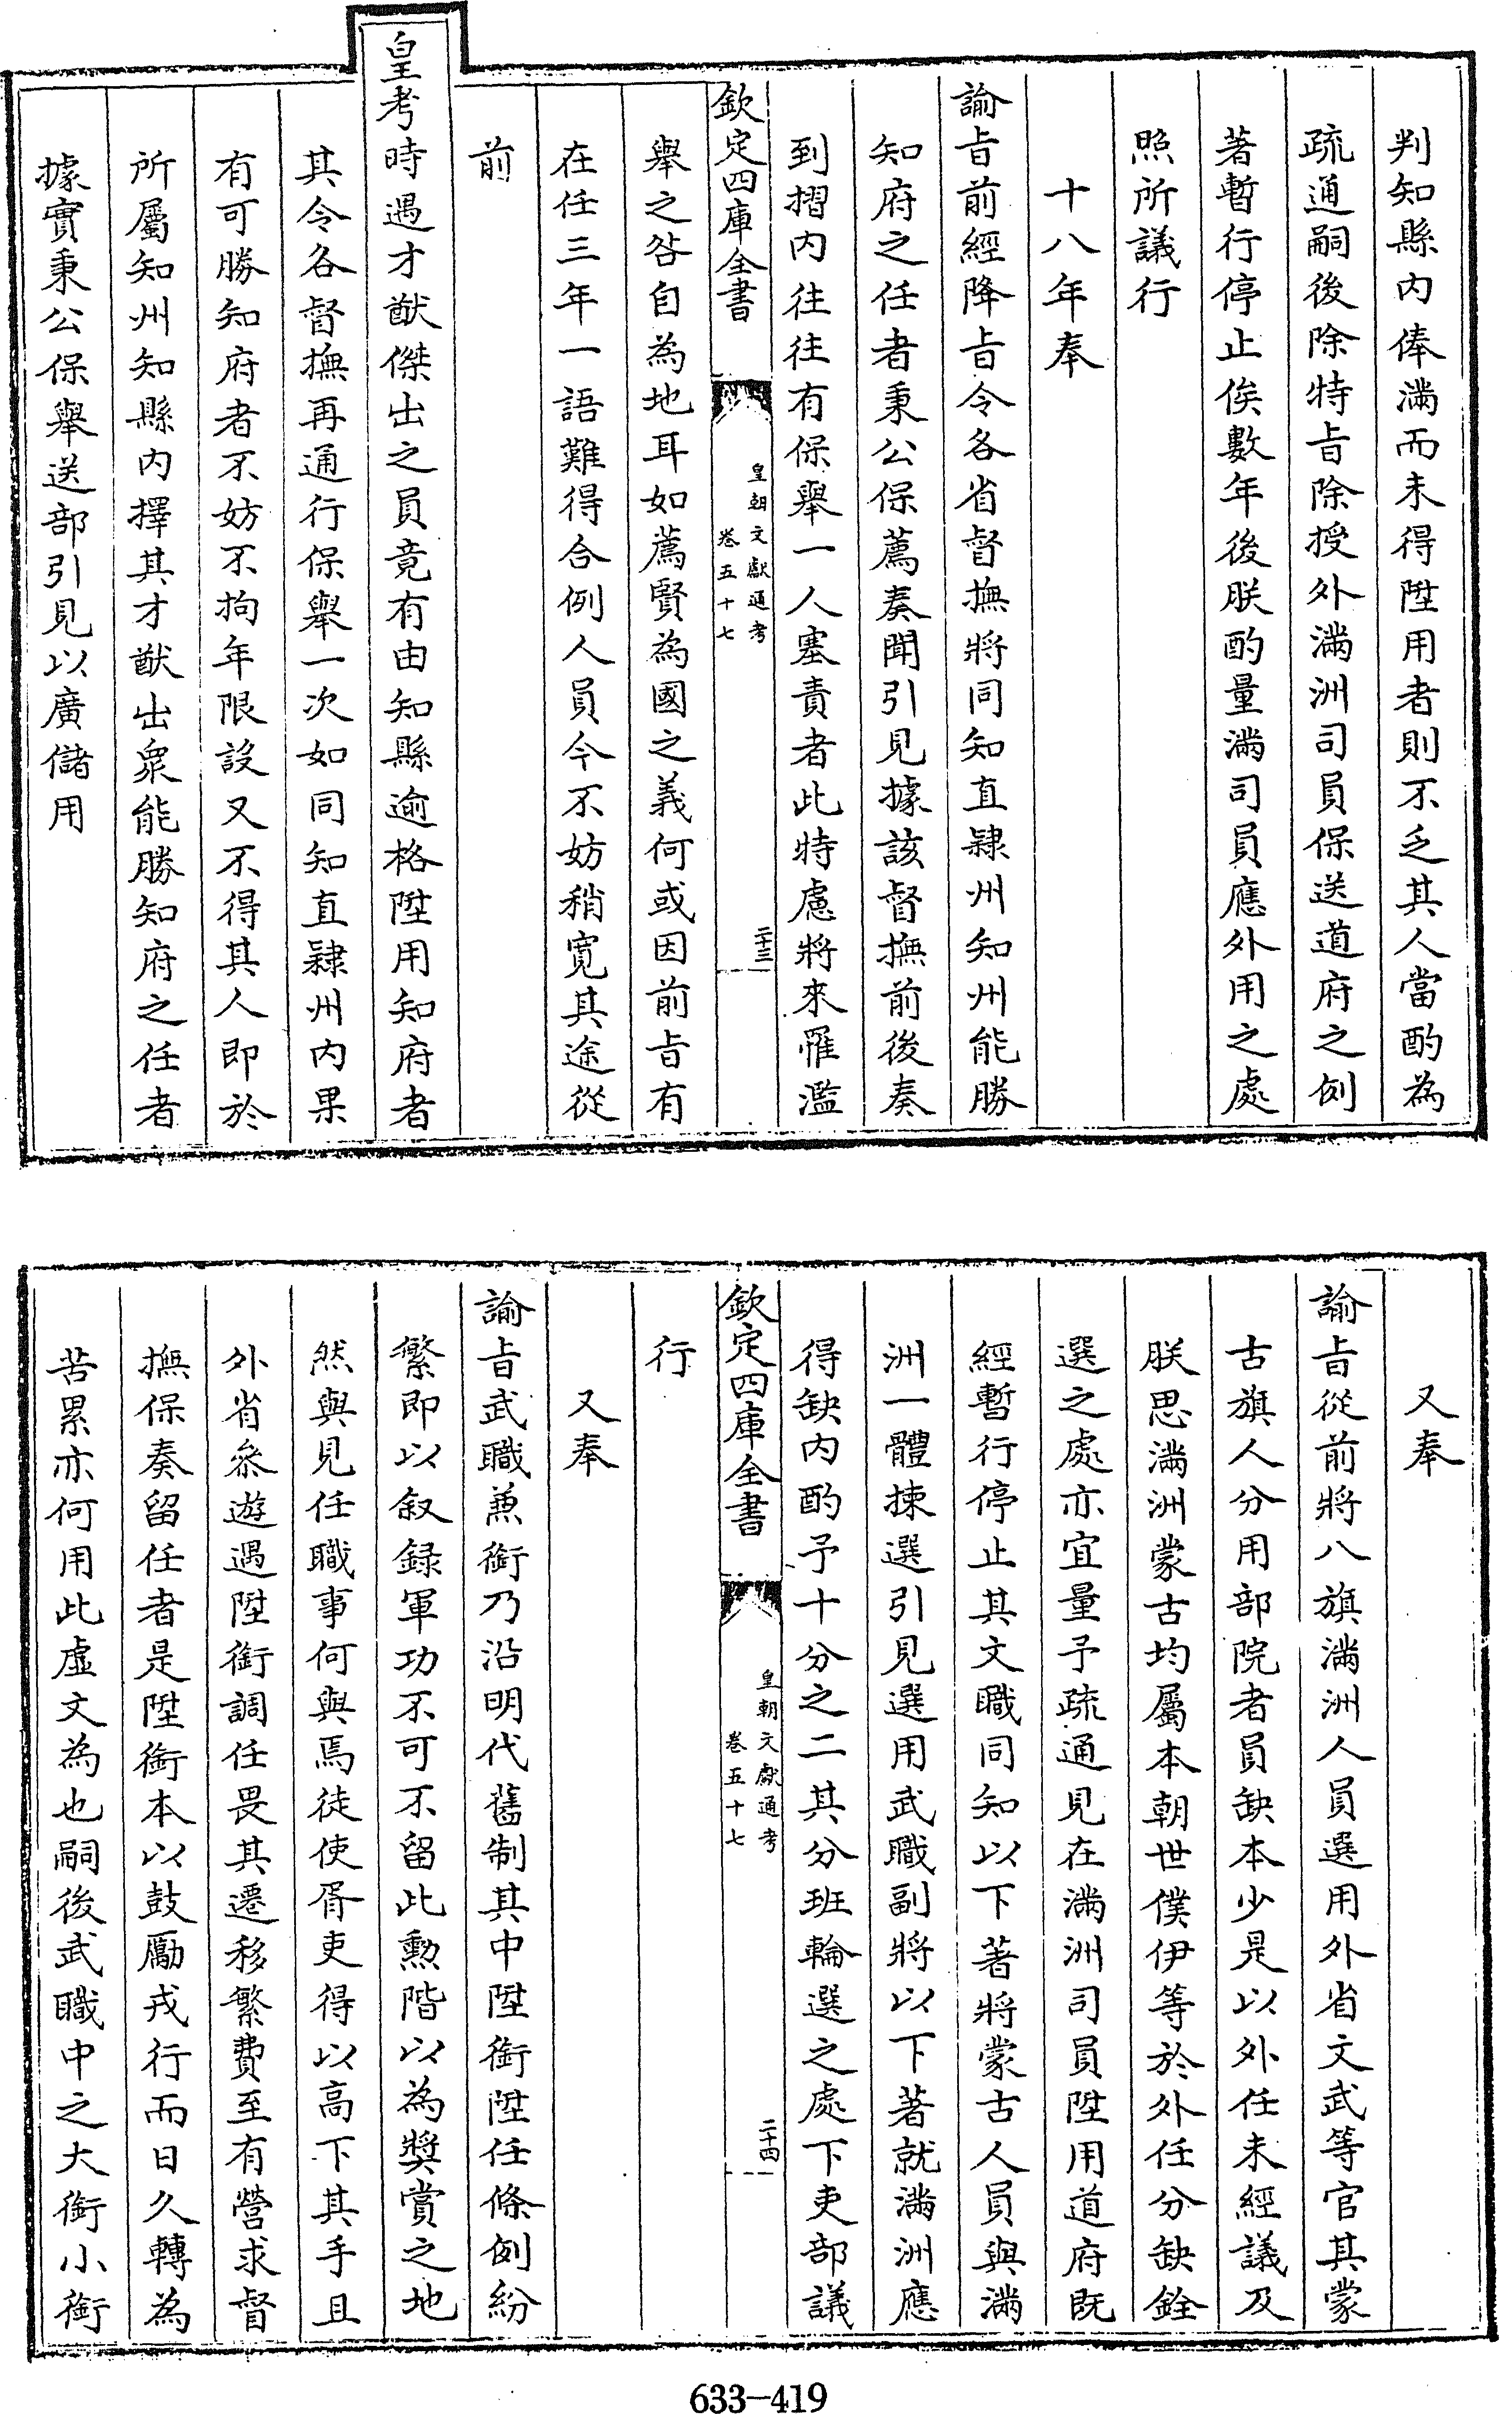 判知縣内俸滿而未得陞用者則不乏其人當酌為
疏通嗣後除特㫖除授外滿洲司員保送道府之例
著暫行停止俟數年後朕酌量滿司員應外用之處
照所議行
十八年奉
諭㫖前經降㫖令各省督撫將同知直𨽻州知州能勝
知府之任者秉公保薦奏聞引見據該督撫前後奏
到摺内往往有保舉一人塞責者此特慮將來罹濫
欽定四庫全書
皇朝文獻通考
卷五十七
二十三
舉之咎自為地耳如薦賢為國之義何或因前㫖有
在任三年一語難得合例人員今不妨稍寛其途從
前
皇考時遇才猷傑出之員竟有由知縣逾格陞用知府者
其令各督撫再通行保舉一次如同知直𨽻州内果
有可勝知府者不妨不拘年限設又不得其人即於
所屬知州知縣内擇其才猷出衆能勝知府之任者
據實秉公保舉送部引見以廣儲用
又奉
諭㫖從前將八旗滿洲人員選用外省文武等官其蒙
古旗人分用部院者員缺本少是以外任未經議及
朕思滿洲蒙古均屬本朝世僕伊等於外任分缺銓
選之處亦宜量予疏通見在滿洲司員陞用道府既
經暫行停止其文職同知以下著將蒙古人員與滿
洲一體揀選引見選用武職副將以下著就滿洲應
得缺内酌予十分之二其分班輪選之處下吏部議
欽定四庫全書
皇朝文獻通考
卷五十七
二十四
行
又奉
諭㫖武職兼銜乃沿明代舊制其中陞銜陞任條例紛
繁即以叙録軍功不可不留此勲階以為奬賞之地
然與見任職事何與焉徒使胥吏得以高下其手且
外省叅遊遇陞銜調任畏其遷移繁費至有營求督
撫保奏留任者是陞銜本以鼓勵戎行而日久轉為
苦累亦何用此虚文為也嗣後武職中之大銜小銜
633-419